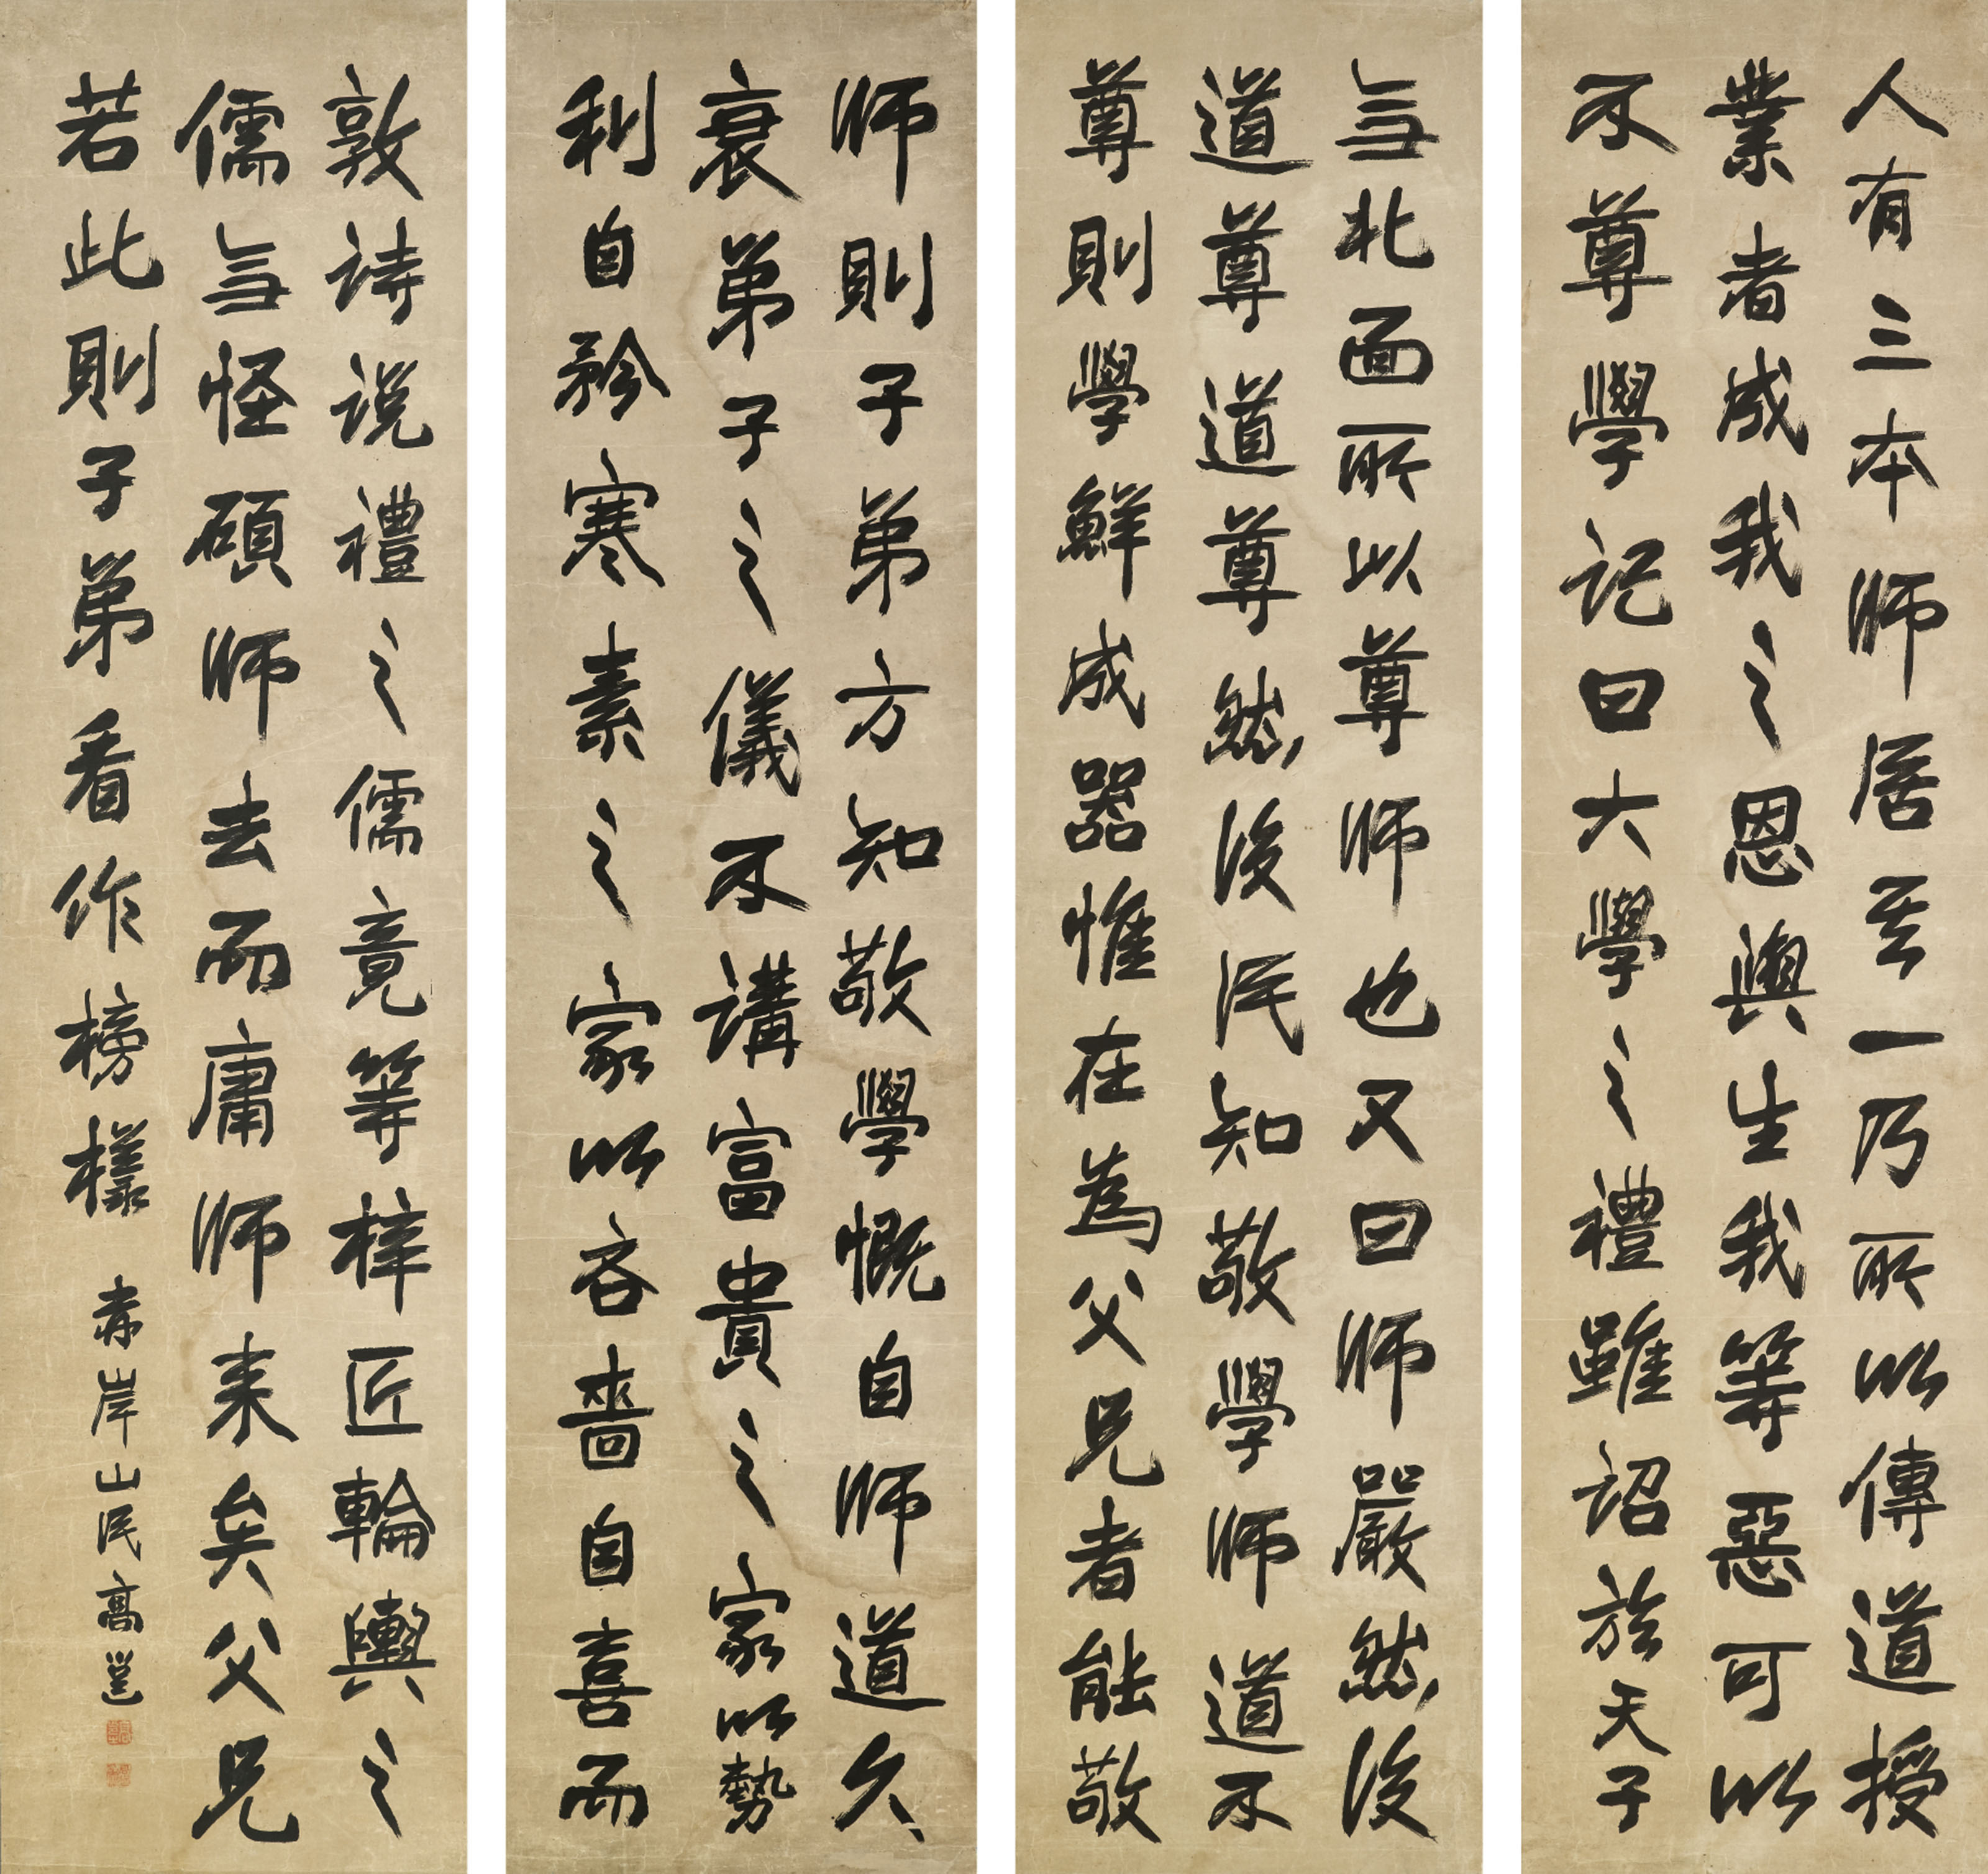 人有三本師居其一乃所以傳道授
業者成我之恩與生我等惡可以
不尊學記曰大學之禮雖詔於天子
無北面所以尊師也又曰師嚴然後
道尊道尊然後民知敬學師道不
尊則學鮮成器惟在為父兄者能敬
師則子弟方知敬學慨自師道久
衰弟子之儀不講富貴之家以勢
利自矜寒素之家以吝嗇自喜而
敦诗说禮之儒竟等梓匠輪輿之
儒無怪碩師去而庸師来矣父兄
若此則子弟看作榜樣
赤岸山民高邕